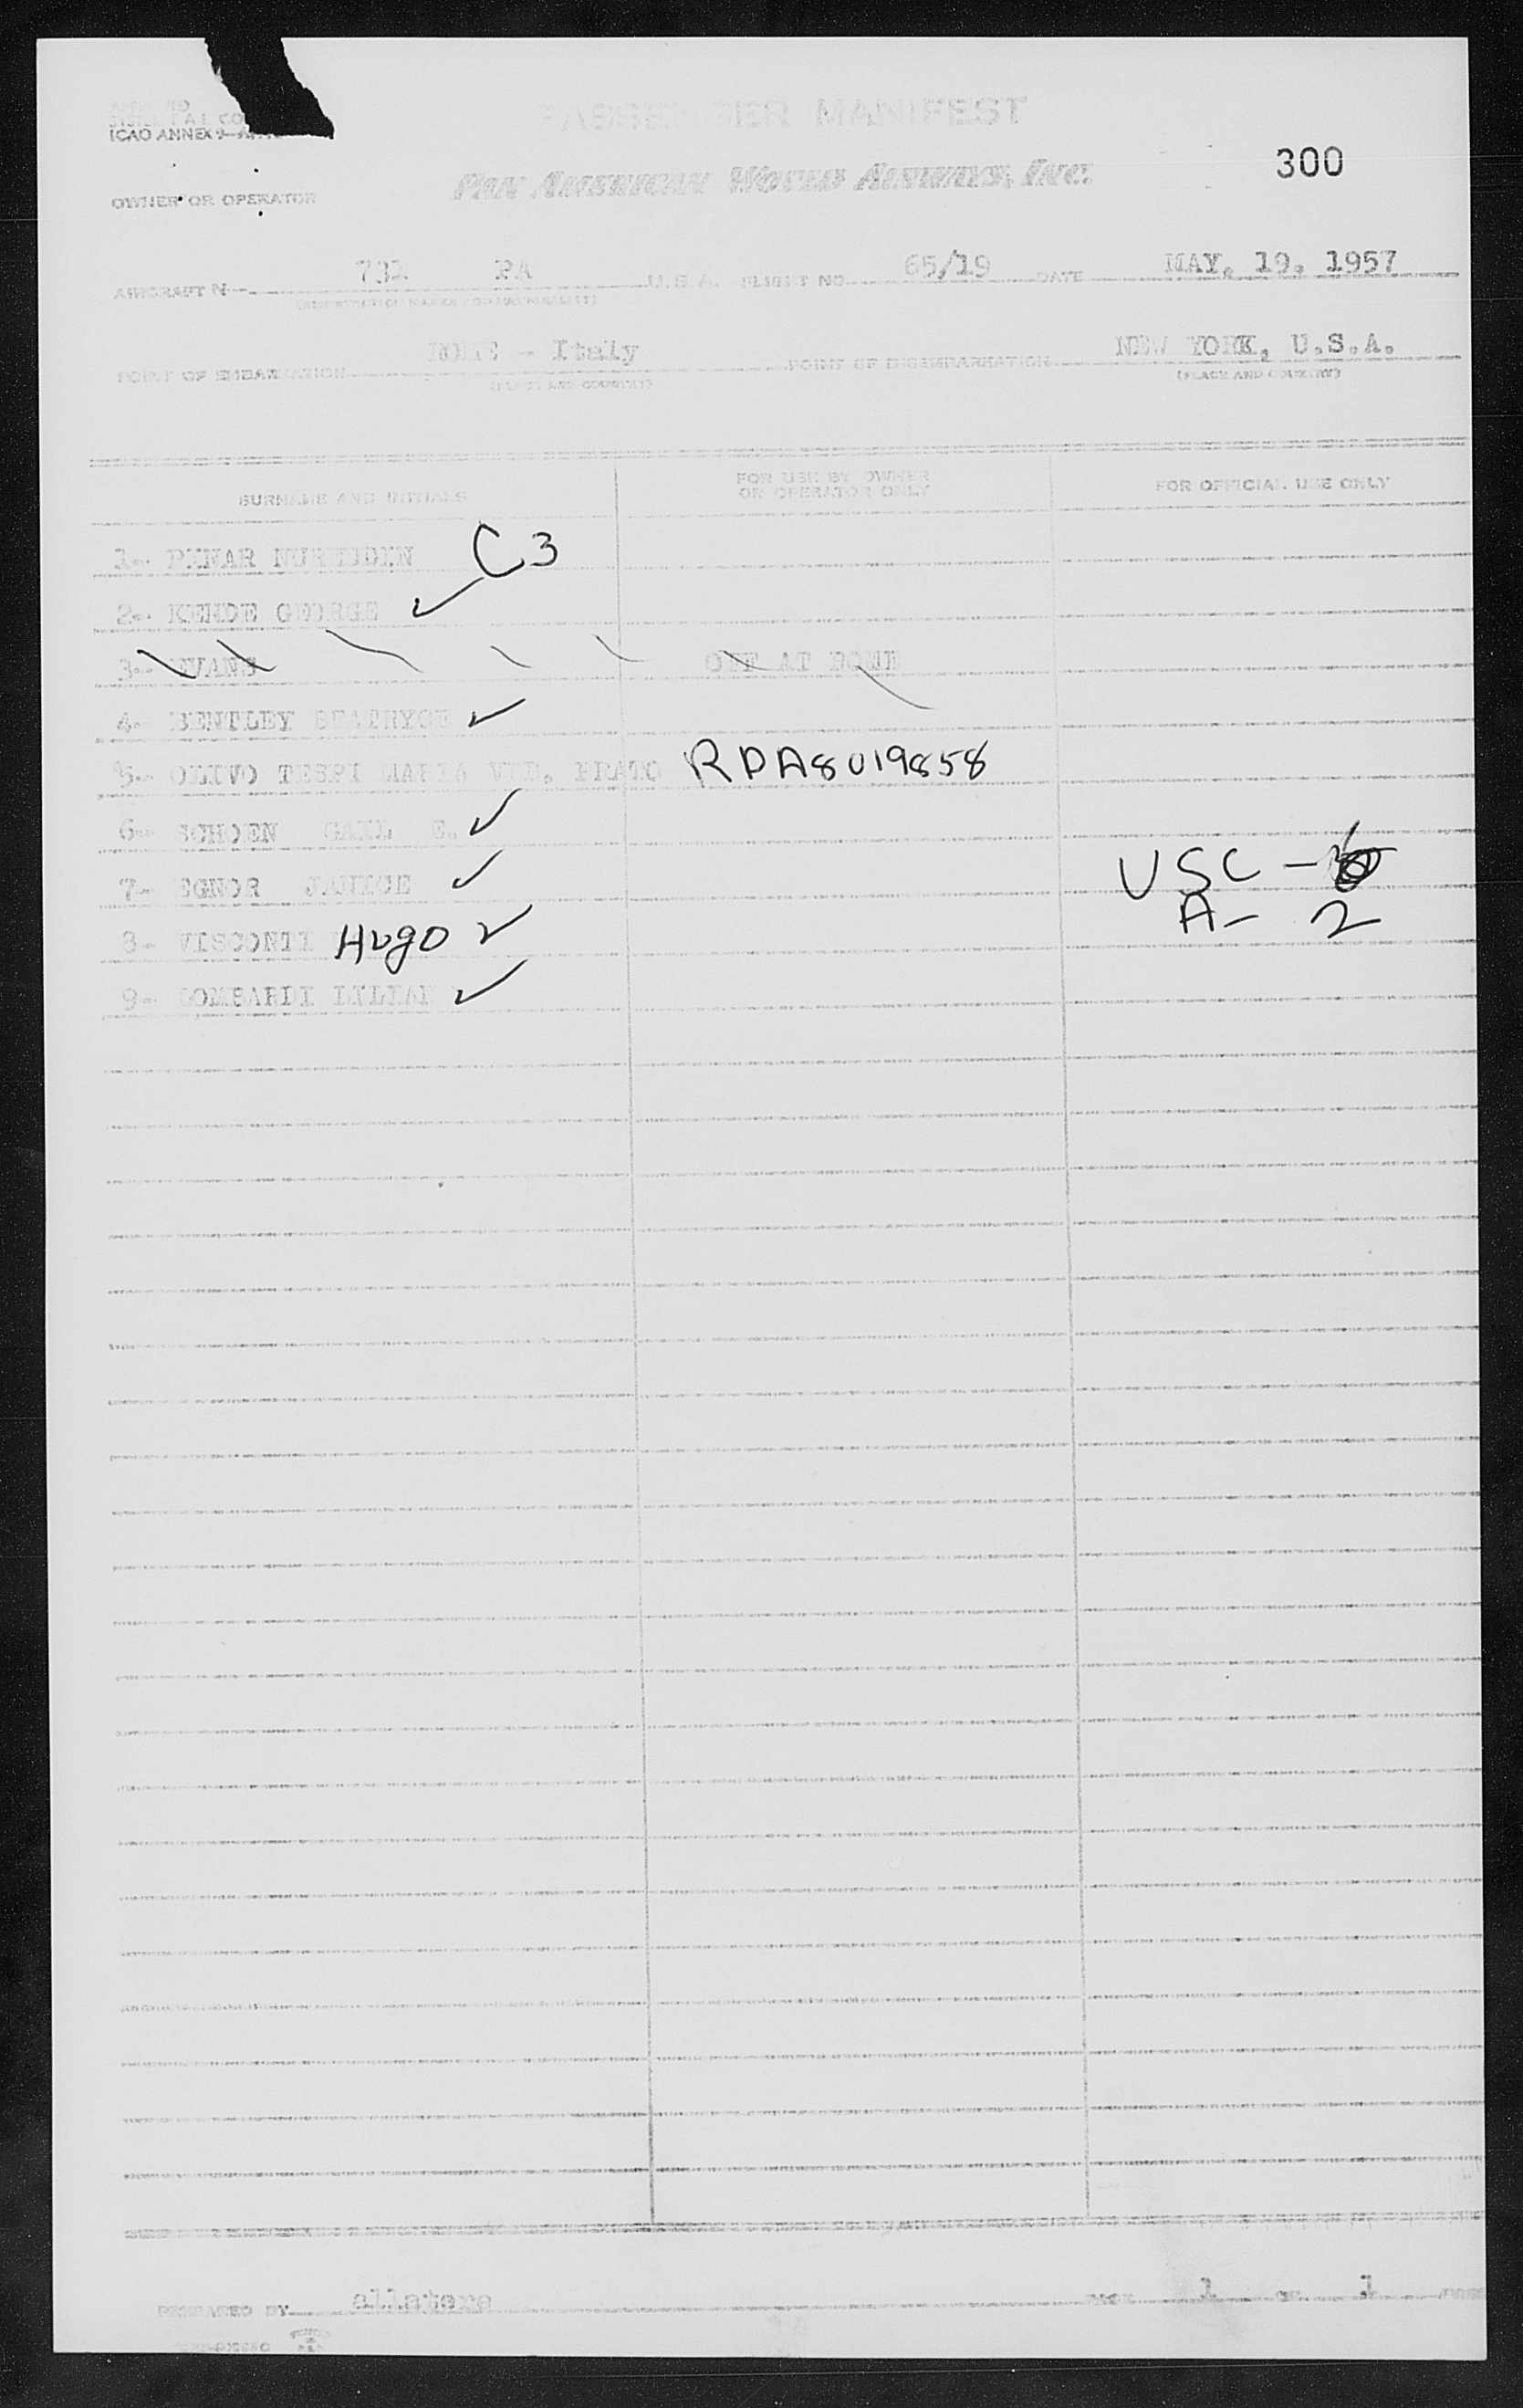 PASSENGER MANIFEST
ICAO ANNEX 9
PAN AMERICAN WORLD AIRWAYS, INC.
300
OWNER OR OPERATOR
AIRCRAFT N 731 PA U.S.A. FLIGHT NO 65/19 DATE MAY, 19, 1957
ROME - Italy NEW YORK, U.S.A.
POINT OF EMBARKATION POINT OF DISEMBARKATION
(PLACE AND COUNTRY) (PLACE AND COUNTRY)
SURNAME AND INITIALS
FOR USE BY OWNER
OR OPERATOR ONLY
FOR OFFICIAL USE ONLY
1- PINAR C3
2- KENDE GEORGE ✓
3- EVANS OFF AT ROME
4- BENTLEY BEATRYCE ✓
5- OLIVO TESPI MARIA VED. PRATO RPA8019858
6- SCHOEN E. ✓
7- EGNOR JANICE ✓
USC - 6
8- VISCONTI Hugo ✓
A- 2
9- LOMBARDI LILIAN ✓
PREPARED BY PAGE 1 OF 1 PAGES